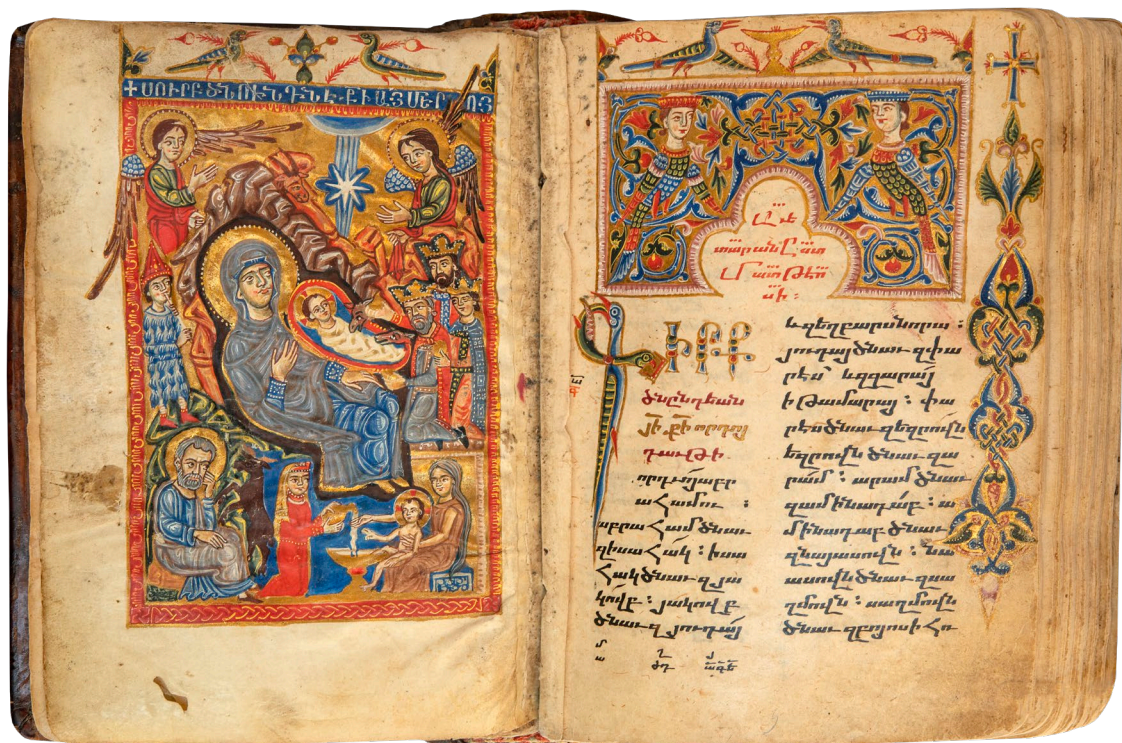 +ՍՈՒՐԲ ԾՆՈՒՆԴՆ Է ՔԻ ԱՅՍ ՄԵՐ ՈՅ
Աւե
տարանԸստ
Մատթէո
սի :
ԳԻՐՔ
ծննդեան
Յի Քի որդւոյ
դաւթի
որդւոյ աբր
ահամու :
աբրահամ ծնաւ
զիսահակ : իսա
հակ ծնաւ զյա
կովբ : յակովբ
ծնաւ զյուդայ
և զեղբարս նորա :
յուդայ ծնաւ զփա
րէս՝ և զզարայ
ի թամարայ : փա
րէս ծնաւ զեզրովն
եզրովն ծնաւ զա
րամ : արամ ծնաւ
զամինադաբ : ա
մինադաբ ծնաւ
զնայասովն : նա
ասովն ծնաւ զսա
ղմովն : սաղմովն
ծնաւ զբոյոս ի հռ